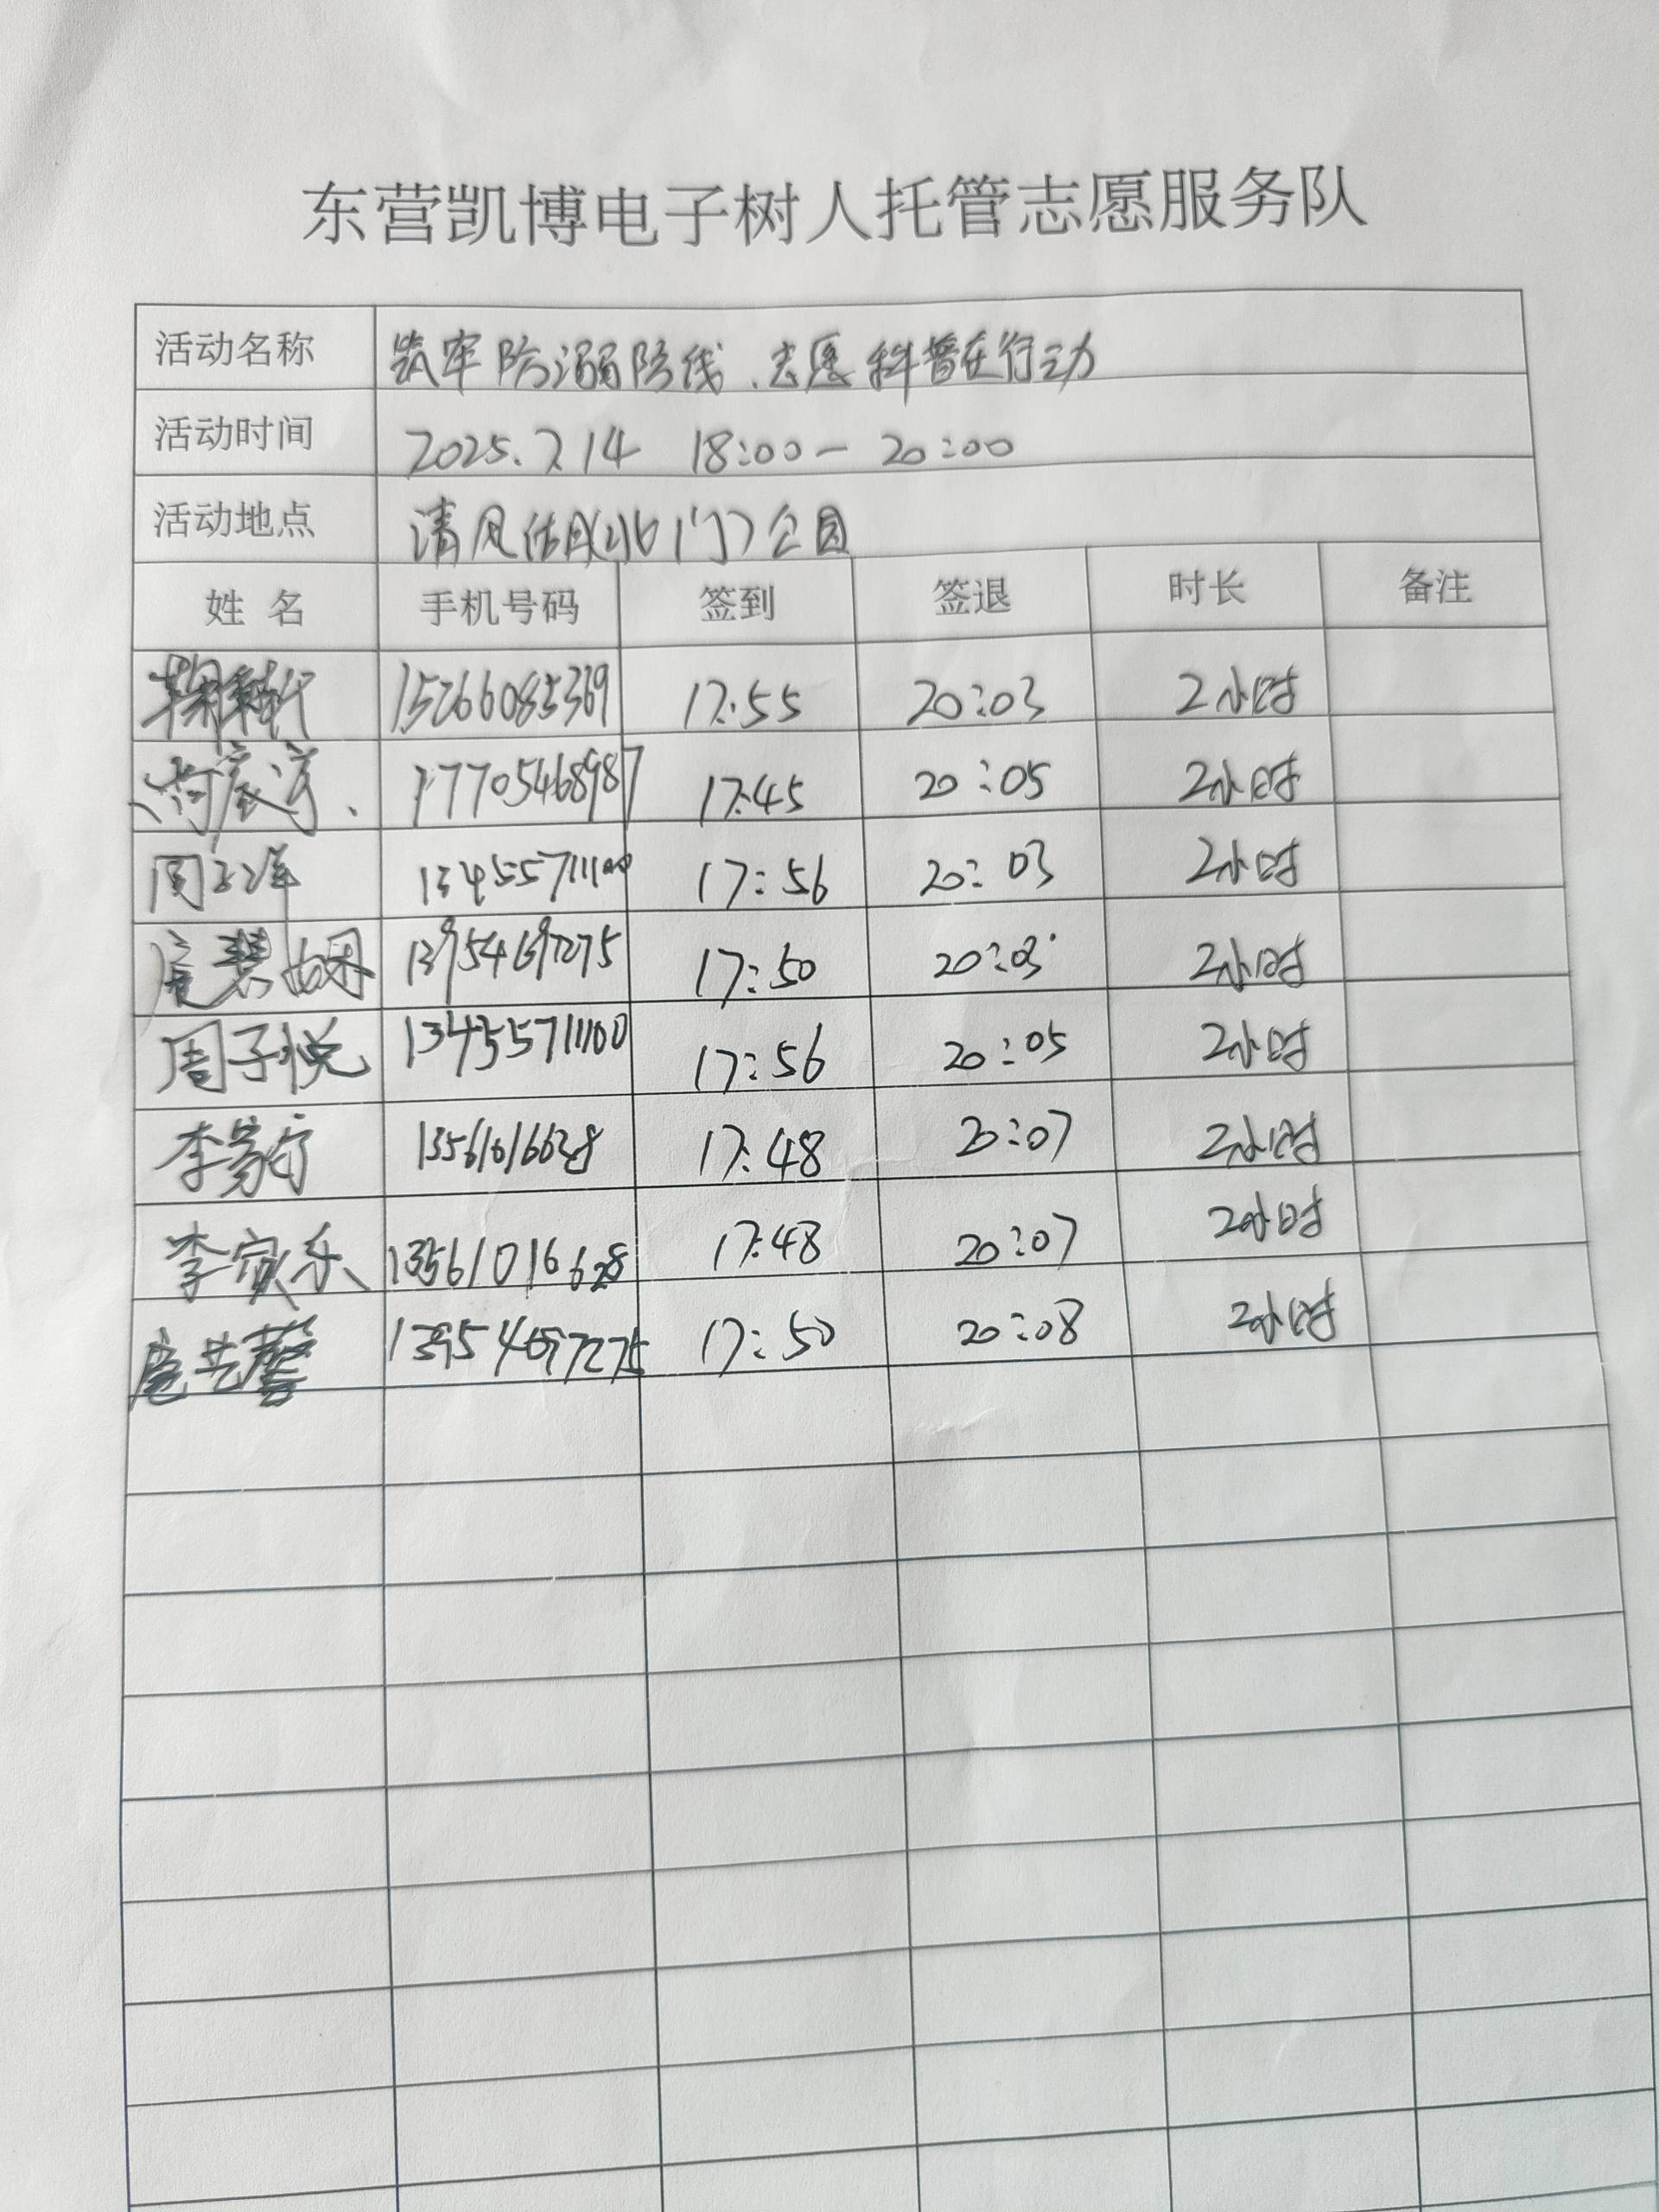 东营凯博电子树人托管志愿服务队
活动名称 筑牢防溺防线、志愿科普在行动
活动时间 2025.7.14 18:00— 20:00
活动地点 清风(北门)公园
姓 名 手机号码 签到 签退 时长 备注
15266085369 17:55 20:03 2小时
17705468987 17:45 20:05 2小时
周 13455711100 17:56 20:03 2小时
13954697275 17:50 20:03 2小时
周子悦 13455711100 17:56 20:05 2小时
李 13561016628 17:48 20:07 2小时
李家乐 13561016628 17:48 20:07 2小时
13954697275 17:50 20:08 2小时